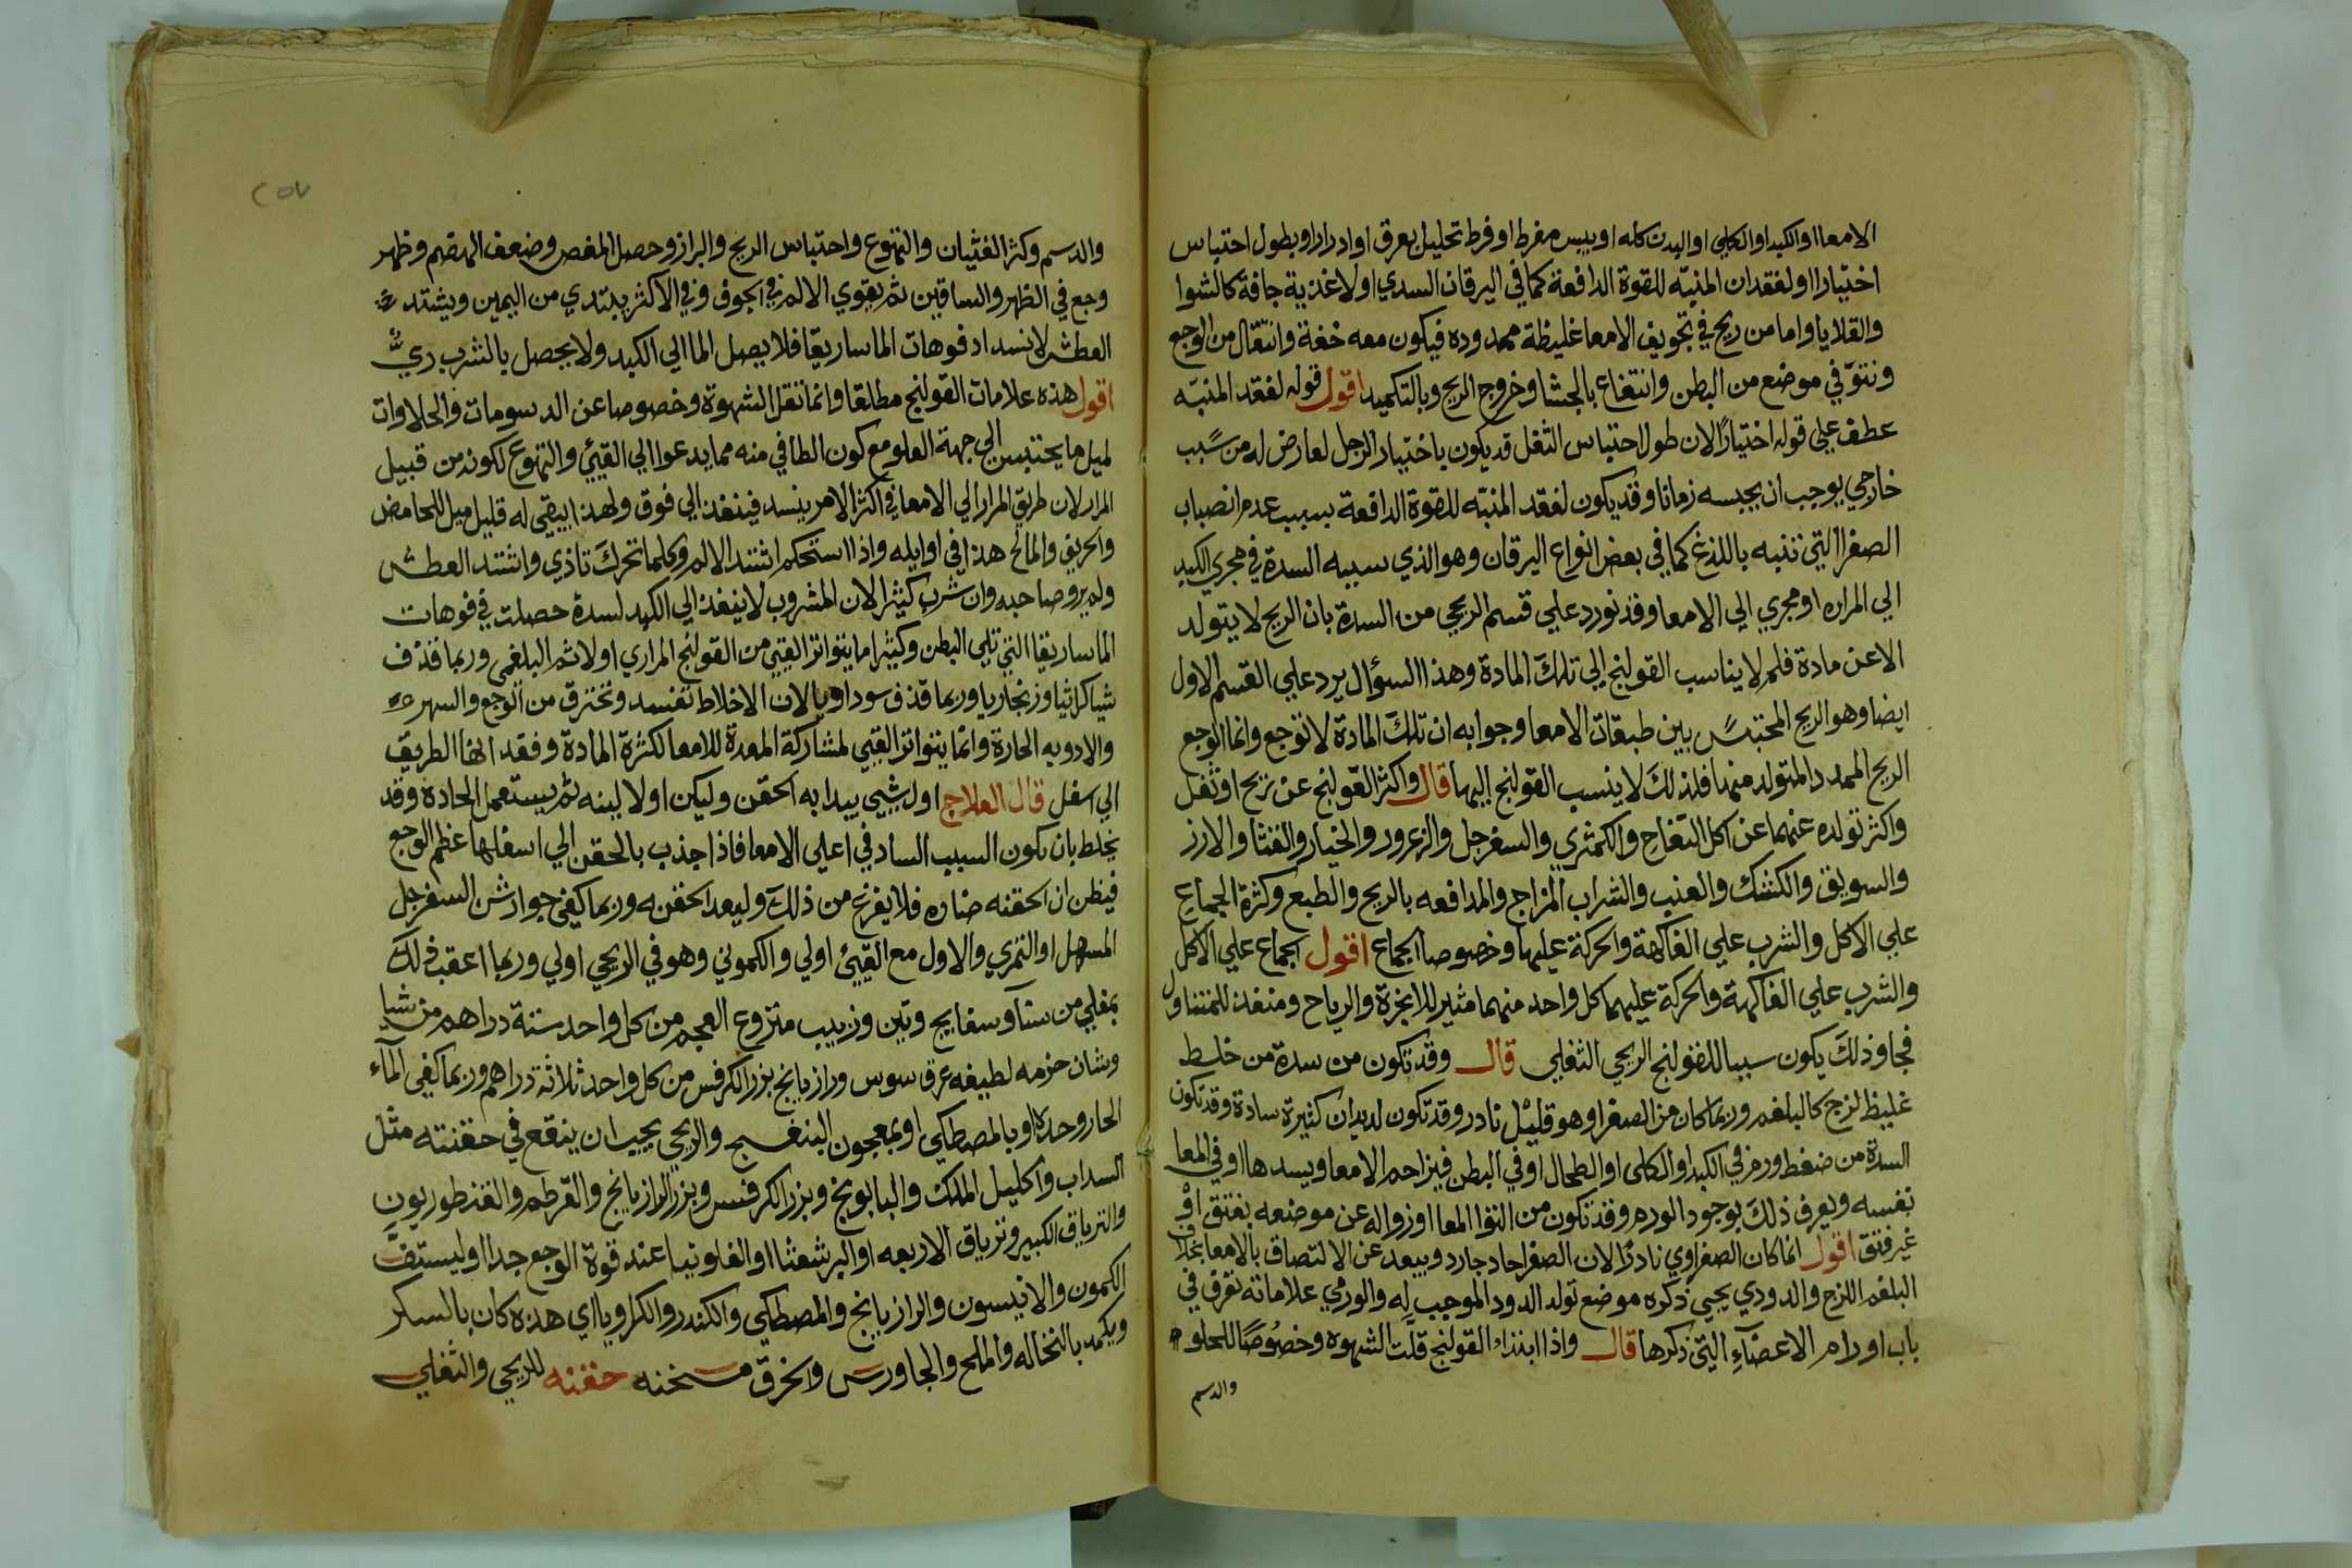 الامعا او الكبد او الكلي او البدن كله او يبس مفرط او فرط تحليل بعرق او ادرار او بطول احتباس
اختيارا او لفقدان المنبه للقوة الدافعة كما في اليرقان السدي او لاغذية جافة كالشوا
والقلايا واما من ريح في تجويف الامعا غليظة ممدوده فيكون معه خفة وانتقال من الوجع
ونتوّ في موضع من البطن وانتفاع بالجشا وخروج الريح وبالتكميد اقول قوله لفقد المنبّه
عطف علي قوله اختيارًا لان طول احتباس الثفل قد يكون باختيار الرجل لعارض له من سبب
خارجي يوجب ان يحبسه زمانا وقد يكون لفقد المنبّه للقوة الدافعة بسبب عدم انصباب
الصفرا التي تنبه باللذغ كما في بعض انواع اليرقان وهو الذي سببه السدة في مجري الكبد
الي المراره او مجري الي الامعا وقد نورد علي قسم الريحي من السدة بان الريح لا يتولد
الا عن مادة فلم لا يناسب القولنج الي تلك المادة وهذا السؤال يرد علي القسم الاول
ايضا وهو الريح المحتبس بين طبقات الامعا وجوابه ان تلك المادة لا توجع وانما الوجع
الريح الممدد المتولد منها فلذلك لا ينسب القولنج اليها قال واكثر القولنج عن ريح او ثفل
واكثر تولده عنهما عن اكل التفاح والكمثري والسفرجل والزعرور والخيار والقثا والارز
والسويق والكشك والعنب والشراب المزاج والمدافعه بالريح والطبع وكثرة الجماع
علي الاكل والشرب علي الفاكهة والحركة عليها وخصوصا الجماع اقول الجماع علي الاكل
والشرب علي الفاكهة والحركة عليهما كل واحد منهما مثير للابخرة والرياح ومنفذ للمتناول
فجا وذلك يكون سببا للقولنج الريحي الثفلي قال وقد تكون من سدة من خلط
غليظ لزج كالبلغم وربما كان من الصفرا وهو قليل نادر وقد تكون لديدان كثيرة سادة وقد تكون
السدة من ضغط ورم في الكبد او الكلي او الطحال او في البطن فيزاحم الامعا ويسدها او في المعا
نفسه ويعرف ذلك بوجود الورم وقد تكون من التوا المعا او زواله عن موضعه بفتق او
غير فتق اقول انما كان الصفراوي نادرًا لان الصفرا حاد جارد ويبعد عن الالتصاق بالامعا بخلاف
البلغم اللزج والدودي يجي ذكره موضع تولد الدود الموجب له والورمي علاماته تعرف في
باب اورام الاعضاء التي ذكرها قال واذا ابتداء القولنج قلّت الشهوه وخصوصًا للحلو
والدسم
والدسم وكثر الغثيان والتهوع واحتباس الريح والبراز وحصل المغص وضعف الهضم وظهر
وجع في الظهر والساقين ثم يقوي الالم في الجوف وفي الاكثر يبتدي من اليمين ويشتد
العطش لانسداد فوهات الماساريقا فلا يصل الما الي الكبد ولا يحصل بالشرب ريّ
اقول هذه علامات القولنج مطلقا وانما تقل الشهوة وخصوصا عن الدسومات والحلاوات
لميل ما يحتبس الي جهة العلو مع كون الطافي منه مما يدعوا الي القيئ والتهوع لكونه من قبيل
المرار لان طريق المرار الي الامعا في اكثر الامر ينسد فينفذ الي فوق ولهذا يبقي له قليل ميل للحامض
والحريف والمالح هذا في اوايله واذا استحكم اشتد الالم وكلما تحرك تاذي واشتد العطش
ولم يرو صاحبه وان شرب كثيرا لان المشروب لا ينفذ الي الكبد لسدة حصلت في فوهات
الماساريقا التي تلي البطن وكثيرا ما يتواتر القيئ من القولنج المراري اولا ثم البلغمي وربما قذف
شيا كراثيا وزنجاريا وربما قذف سوداويا لان الاخلاط تفسد وتحترق من الوجع والسهر
والادويه الحارة وانما يتواتر القيئ لمشاركة المعدة للامعا لكثرة المادة وفقدانها الطريق
الي اسفل قال العلاج اول شيئ يبدا به الحقن وليكن اولا لينه ثم يستعمل الحادة وقد
يغلط بان تكون السبب الساد في اعلي الامعا فاذا جذب بالحقن الي اسفلها عظم الوجع
فيظن ان الحقنه ضاره فلا يفزع من ذلك وليعد الحقنه وربما كفي جوارش السفرجل
المسهل او التمري والاول مع القيئ اولي والكموني وهو في الريحي اولي وربما اعقب ذلك
بمغلي من سنا وبسفايج وتين وزبيب منزوع العجم من كل واحد ستة دراهم من شبا
وشان حزمه لطيفه عرق سوس ورازيانج بزر الكرفس من كل واحد ثلاثة دراهم وربما كفي المآء
الحار وحده او بالمصطكي او بمعجون البنفسج والريحي يجب ان ينقع في حقنته مثل
السداب واكليل الملك والبابونج وبزر الكرفس وبزر الرازيانج والقرطم والقنطوريون
والترياق الكبير وترياق الاربعه او البرشعثا او الفلونيا عند قوة الوجع جدا وليستف
الكمون والانيسون والرازيانج والمصطكي والكندر والكراويا اي هذه كان بالسكر
ويكمد بالنخاله والملح والجاورس والخرق مسخنه حقنه للريحي والثفلي